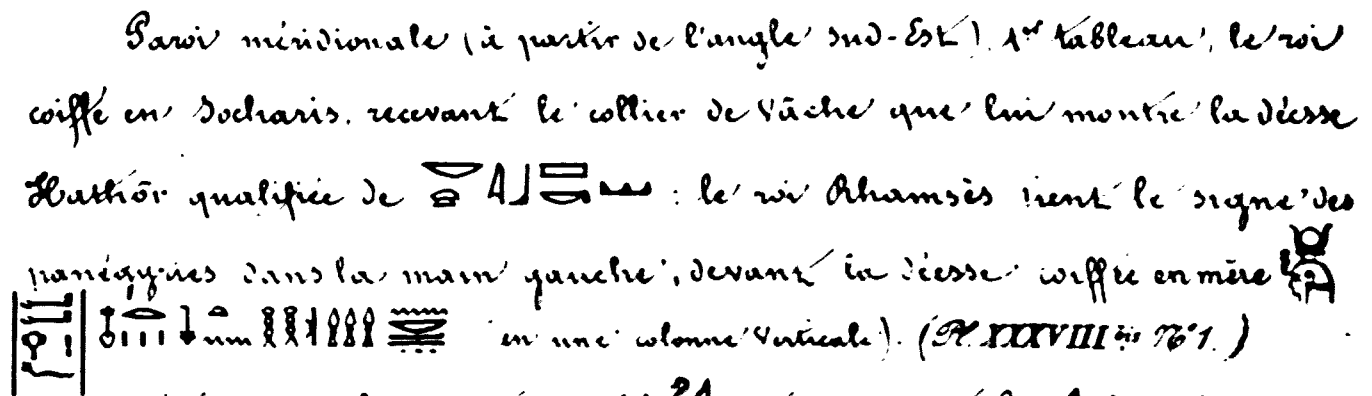 Paroi méridionale (à partir de l'angle sud-Est). 1er tableau, le roi
coiffé en Socharis, recevant le collier de Vache que lui montre la déesse
Hathôr qualifiée de : le roi Rhamsès tient le signe des
panégyries dans la main gauche, devant la déesse coiffée en mère
en une colonne verticale). (Pl. XXXVIII bis N° 1.)